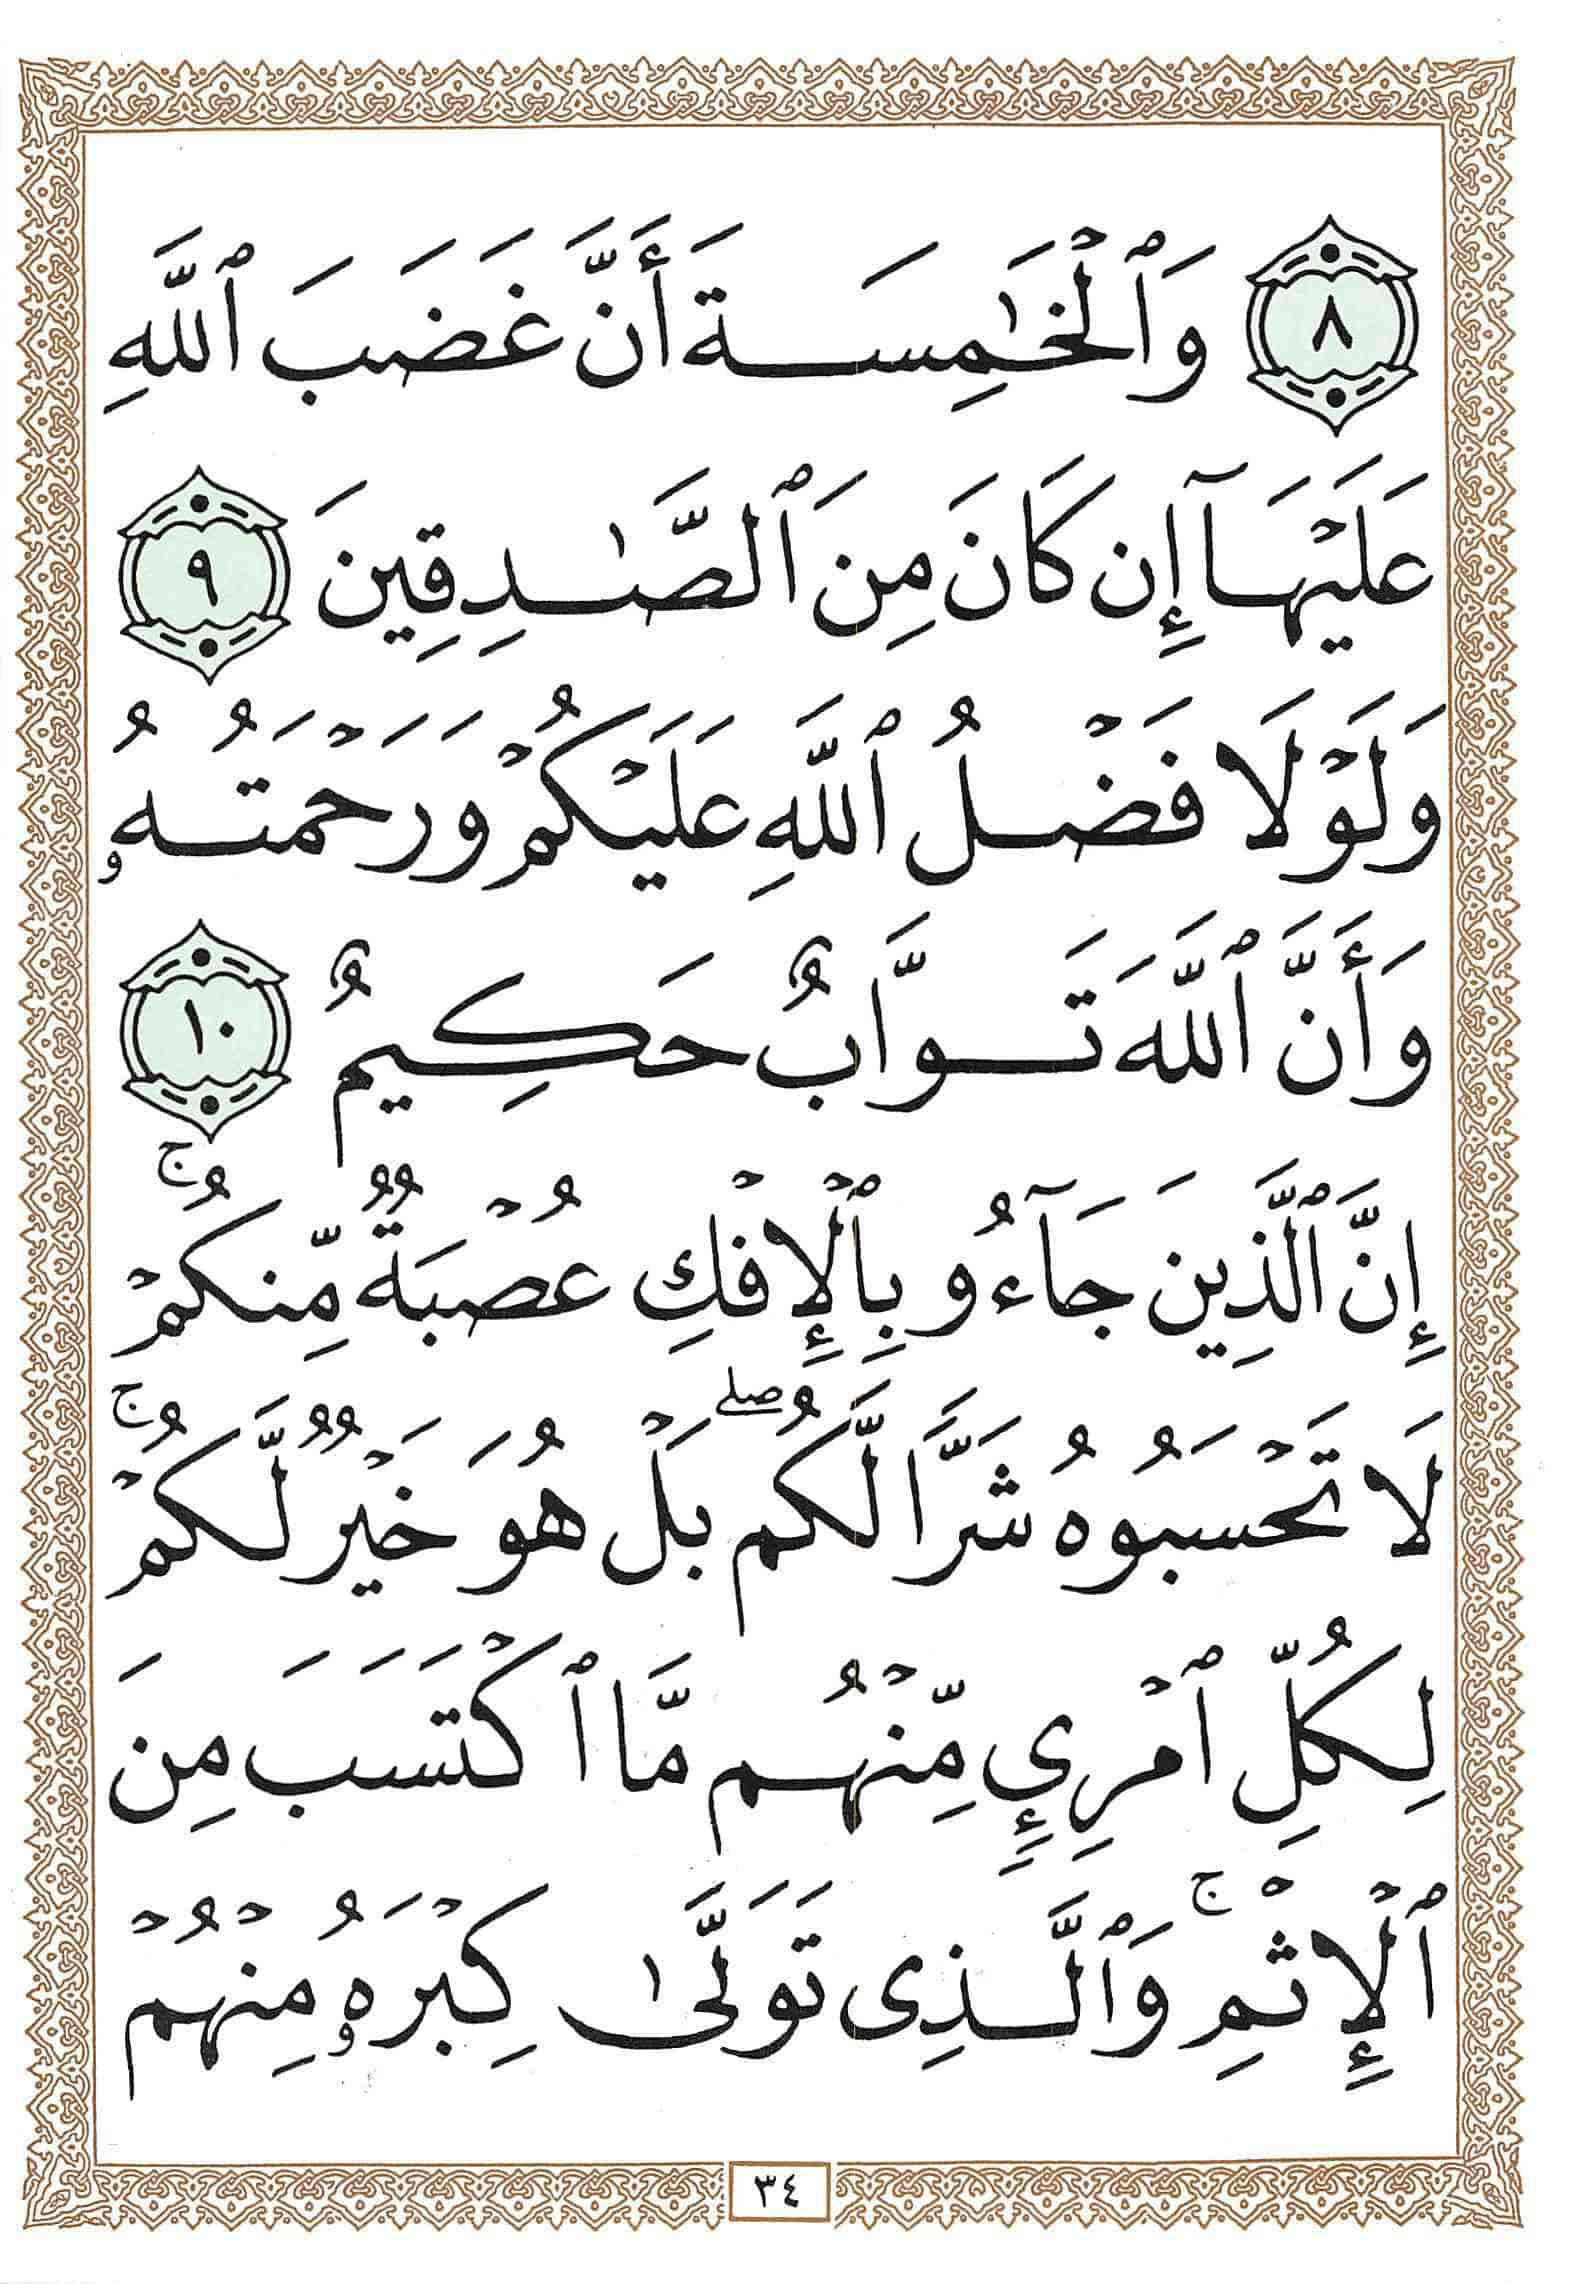 ٨ وَٱلْخَـٰمِسَةَ أَنَّ غَضَبَ ٱللَّهِ
عَلَيْهَآ إِن كَانَ مِنَ ٱلصَّـٰدِقِينَ ٩
وَلَوْلَا فَضْلُ ٱللَّهِ عَلَيْكُمْ وَرَحْمَتُهُۥ
وَأَنَّ ٱللَّهَ تَوَّابٌ حَكِيمٌ ١٠
إِنَّ ٱلَّذِينَ جَآءُو بِٱلْإِفْكِ عُصْبَةٌ مِّنكُمْ ۚ
لَا تَحْسَبُوهُ شَرًّا لَّكُم ۖ بَلْ هُوَ خَيْرٌ لَّكُمْ ۚ
لِكُلِّ ٱمْرِئٍ مِّنْهُم مَّا ٱكْتَسَبَ مِنَ
ٱلْإِثْمِ ۚ وَٱلَّذِى تَوَلَّىٰ كِبْرَهُۥ مِنْهُمْ
٣٤